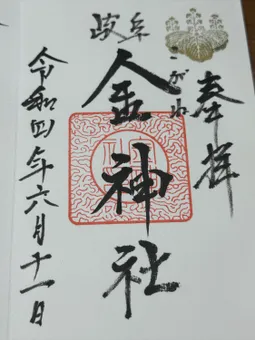 奉拝
岐阜
こがね
金神社
令和四年六月十一日